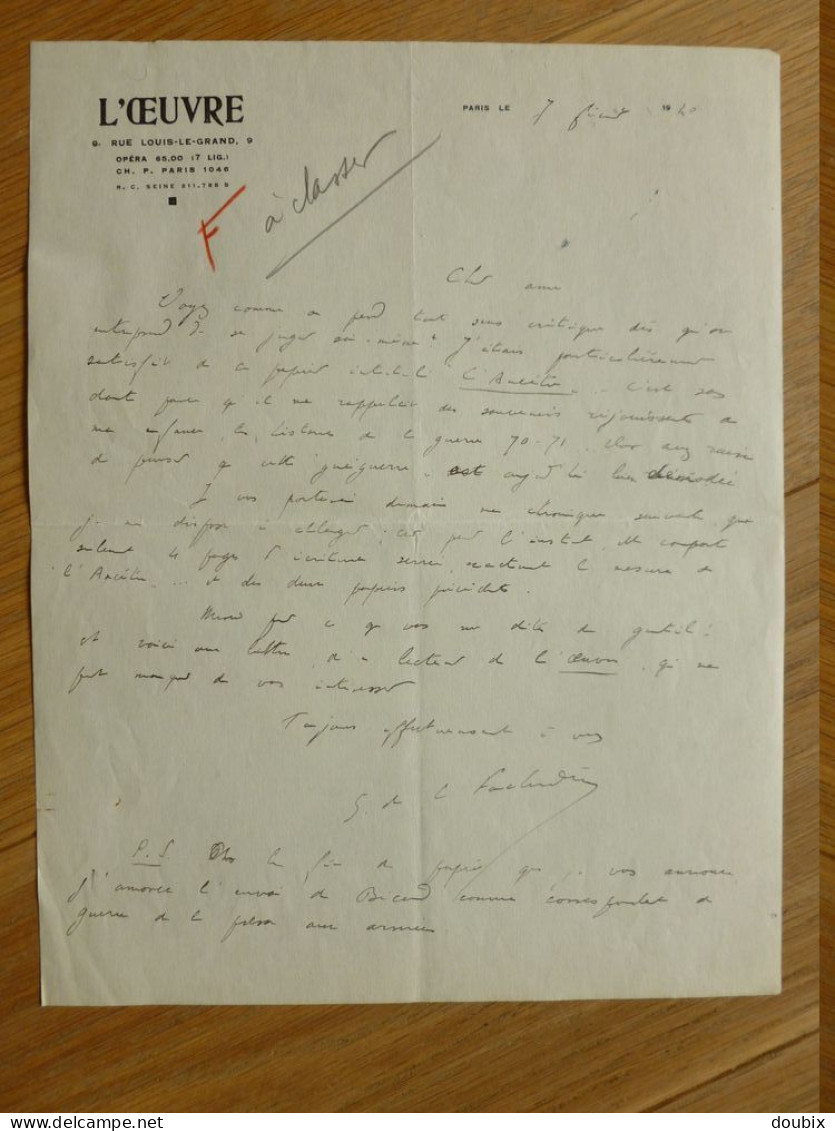 L'ŒUVRE
9, RUE LOUIS-LE-GRAND, 9
OPÉRA 65.00 (7 LIG.)
CH. P. PARIS 1046
R. C. SEINE 211.788 B
PARIS LE 7 1940
F à classer
Cher ami
Voyez comme on perd tout sens critique dès qu'on
entreprend de se juger soi-même ! J'étais particulièrement
satisfait de ce papier intitulé "L'Ancêtre"... C'est sans
doute parce qu'il me rappelait des souvenirs réjouissants de
mon enfance, les histoires de la guerre 70-71... Vous avez raison
de penser que cette guéguerre est aujourd'hui bien démodée
Je vous porterai demain une chronique suivante que
je me dispose à allonger ; car pour l'instant, elle comporte
seulement 4 pages d'écriture serrée, exactement la mesure de
"l'Ancêtre"... et des deux papiers précédents.
Merci pour ce que vous me dites de gentil :
et voici une lettre d'un lecteur de l'Œuvre, qui ne
peut manquer de vous intéresser
Toujours affectueusement à vous
G. de la Fouchardière
P.S. Dans la fin du papier que je vous annonce
j'amorce l'envoi de Bicard comme correspondant de
guerre de la presse aux armées
doubix